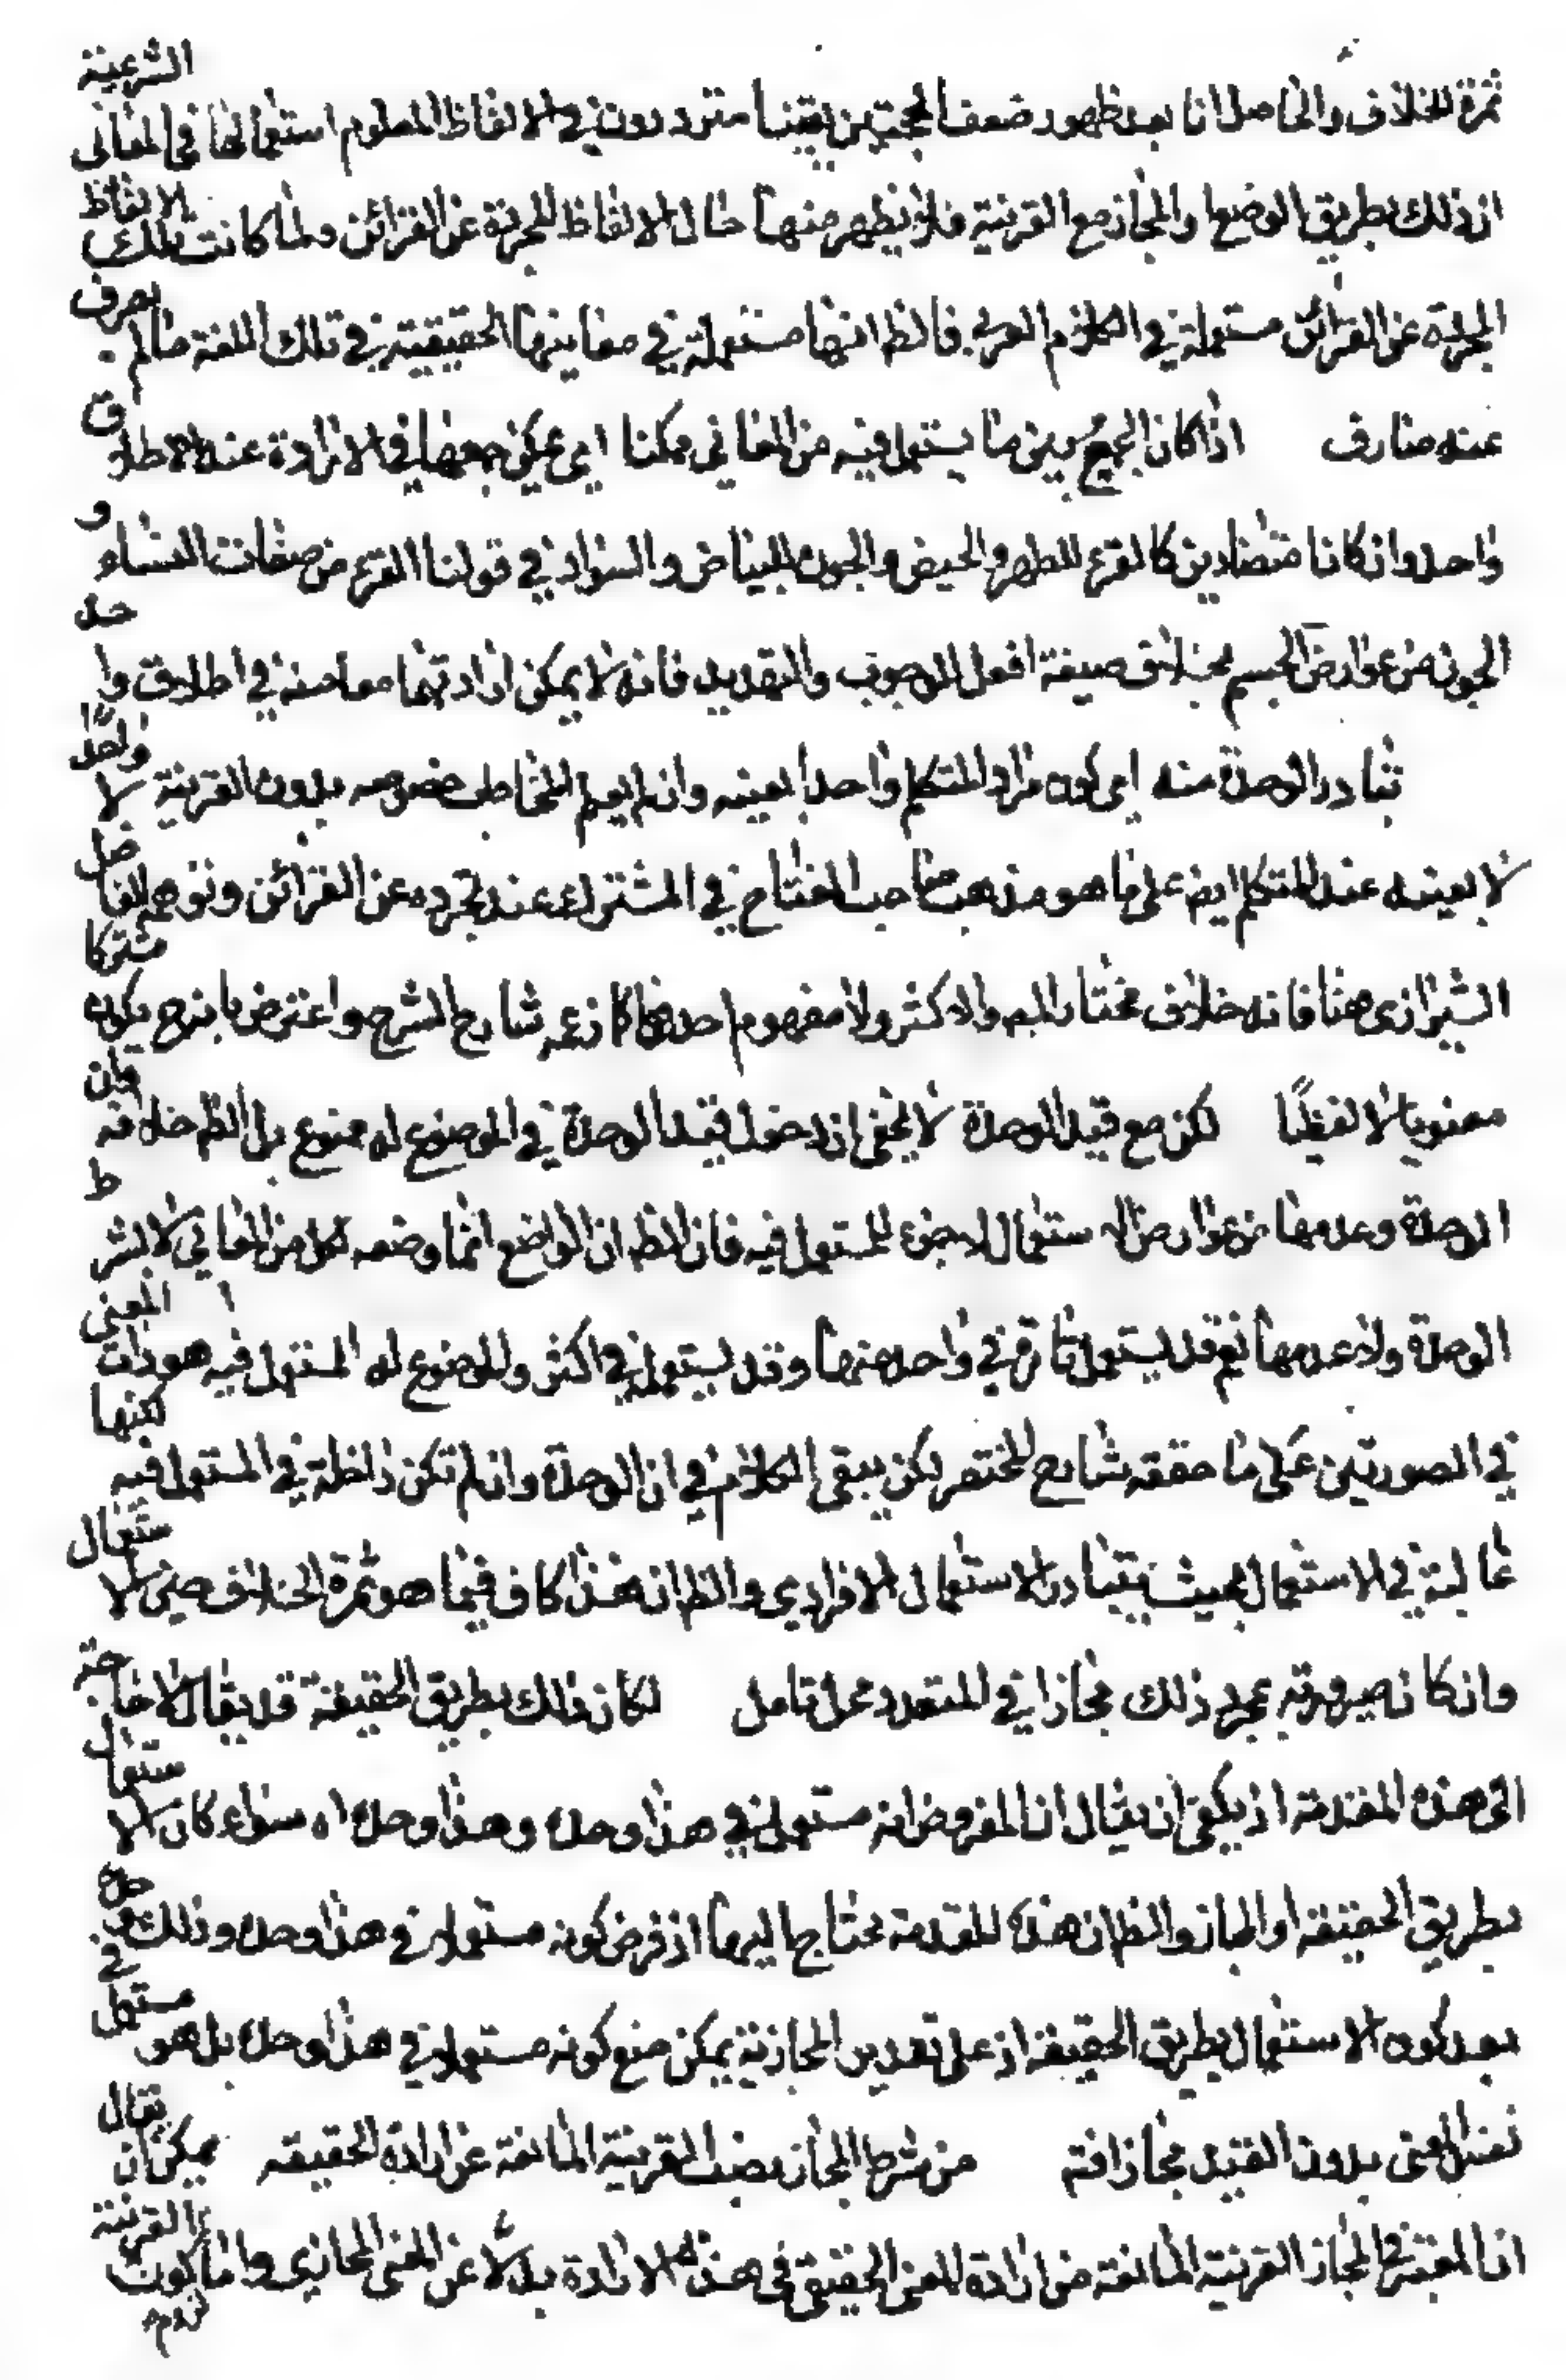 ثمرة الخلاف والحاصل انا بعد ظهور ضعف الحجتين بقينا مترددون في الالفاظ المعلوم استعمالها في المعاني الشرعية
ان ذلك بطريق الوضع او المجاز مع القرنية فلا يظهر منها حال الالفاظ المجردة عن القرائن ولما كانت تلك الالفاظ
المجردة عن القرائن مستعملة في الكلام العربي فالظ انها مستعملة في معانيها الحقيقية في تلك اللغة ما لم يعرف
عنه صارف اذا كان الجمع بين ما يستعمل فيه من المعاني ممكنا اي يمكن جمعها في الارادة عند الاطلاق
واحد وان كانا متضادين كالقرء للطهر والحيض والجون للبياض والسواد في قولنا القرء من صفات النساء و
الجون من عوارض الجسم بخلاف صيغة افعل للوجوب والتهديد فانه لا يمكن ارادتهما معا منه في اطلاق واحد
تبادر الوحدة منه اي كون مراد المتكلم واحدا بعينه وان لم يعلم المخاطب خصوصه بدون القرينة لا واحدا
لا بعينه عند المتكلم ايض على ما هو مذهب صاحب المفتاح في المشترك عند تجرده عن القرائن وتوهم الفاضل
الشيرازي هنا فانه خلاف مختار المص والاكثر ولا مفهوم احدهما كما زعم شارح الشرح واعترض بانه ح يكون مشتركا
معنويا لا لفظيا لكن مع قيد الوحدة لا يخفى ان دخول قيد الوحدة في الموضوع له ممنوع بل الظ خلافه فان
الوحدة وعدمها من عوارض الاستعمال لا جزء للمستعمل فيه فان الظ ان الواضع انما وضعه لكل من المعاني لا بشرط
الوحدة ولا عدمها نعم قد يستعمل تارة في واحد منها وقد يستعمل في اكثر والموضوع له المستعمل فيه هو ذات المعنى
في الصورتين على ما حققه شارح المختصر لكن يبقى الكلام في ان الوحدة وان لم تكن داخلة في المستعمل فيه لكنها
غالبة في الاستعمال بحيث يتبادر الاستعمال الافرادي والظ ان هذا كاف فيما هو ثمرة الخلاف حين الاستعمال
وان كان صيرورته بمجرد ذلك مجازا في المتعدد محل تامل لكان ذلك بطريق الحقيقة قد يقال لا حاجة
الى هذه المقدمة اذ يكفي ان يقال ان المفروض انه مستعمل في هذا وحده وهذا وحده اه سواء كان الاستعمال
بطريق الحقيقة او المجاز والظ ان هذه المقدمة محتاج اليها اذ فرض كونه مستعملا في هذا وحده وذلك وحده في
بعد كون الاستعمال بطريق الحقيقة اذ على تقدير المجازية يمكن منع كونه مستعملا في هذا وحده بل هو مستعمل
نفس المعنى بدون القيد مجازا فتم من شرط المجاز نصب القرينة المانعة عن ارادة الحقيقه يمكن ان يقال
ان المعتبر في المجاز القرنية المانعة من ارادة المعنى الحقيقي في هذه الارادة بدلا عن المعنى المجازي واما كون القرنية
لزوم